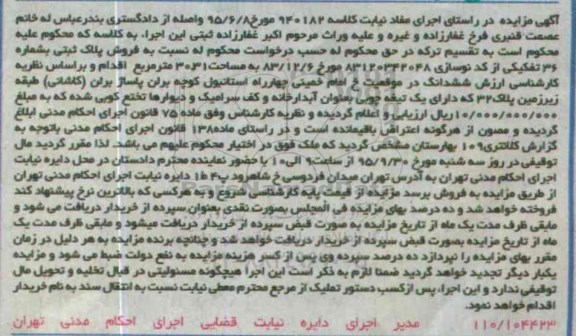 آگهی مزایده در راستای اجرای مفاد نیابت کلاسه ۹۴۰۱۸۲ مورخ ۹۵/۶/۸ واصله از دادگستری بندرعباس له خانم
عصمت قنبری فرخ غفارزاده و غیره و علیه وراث مرحوم اکبر غفارزاده ثبتی این اجرا، به کلاسه که محکوم علیه
محکوم است به تقسیم ترکه در حق محکوم له حسب درخواست محکوم له نسبت به فروش پلاک ثبتی بشماره
۳۶ تفکیکی از کد نوسازی ۸۳۱۲۰۳۴۲۰۴۸ مورخ ۸۳/۱۲/۶ به مساحت ۳۰.۳۱ مترمربع اقدام و براساس نظریه
کارشناسی ارزش ششدانگ در موقعیت خ امام خمینی چهارراه استانبول کوچه برلن پاساژ برلن (کاشانی) طبقه
زیرزمین پلاک ۳۲ که دارای یک تیغه چوبی بعنوان آبدارخانه و کف سرامیک و دیوارها تختم کوبی شده که به مبلغ
۱۰/۰۰۰/۰۰۰/۰۰۰ ریال ارزیابی و اعلام گردیده و نظریه کارشناس وفق ماده ۷۵ قانون اجرای احکام مدنی ابلاغ
گردیده و مصون از هرگونه اعتراض باقیمانده است و در راستای ماده ۱۳۸ قانون اجرای احکام مدنی باتوجه به
گزارش کلانتری ۱۰۹ بهارستان مشخص گردید که ملک فوق در اختیار محکوم علیهم می باشد. لذا مقرر گردید مال
توقیفی در روز سه شنبه مورخ ۹۵/۹/۳۰ از ساعت ۹ الی ۱۰ با حضور نماینده محترم دادستان در محل دایره نیابت
اجرای احکام مدنی تهران به آدرس تهران میدان فردوسی خ شاهرود پ ۴ ط ۱ دایره نیابت اجرای احکام مدنی
از طریق مزایده به فروش برسد مزایده از قیمت پایه کارشناسی شروع و به هرکسی که بالاترین نرخ پیشنهاد کند
فروخته خواهد شد و ده درصد بهای مزایده فی المجلس بصورت نقدی بعنوان سپرده از خریدار دریافت می شود و
مابقی ظرف مدت یک ماه از تاریخ مزایده به صورت قبض سپرده از خریدار دریافت میشود و مابقی ظرف مدت یک
ماه از تاریخ مزایده بصورت قبض سپرده از خریدار دریافت خواهد شد و چنانچه برنده مزایده به هر دلیل در زمان
مقرر بهای مزایده را نپردازد ده درصد سپرده وی پس از کسر هزینه مزایده به نفع دولت ضبط می شود و مزایده
یکبار دیگر تجدید خواهد گردید ضمنا لازم به ذکر است این اجرا هیچگونه مسئولیتی در قبال تخلیه و تحویل مال
توقیفی ندارد و این اجرا، پس از کسب دستور تملیک از مرجع محترم معطی نیابت نسبت به انتقال سند به نام خریدار
اقدام خواهد نمود.
۱۱۰/۱۰۴۴۲۳ مدیر اجرای دایره نیابت قضایی اجرای احکام مدنی تهران